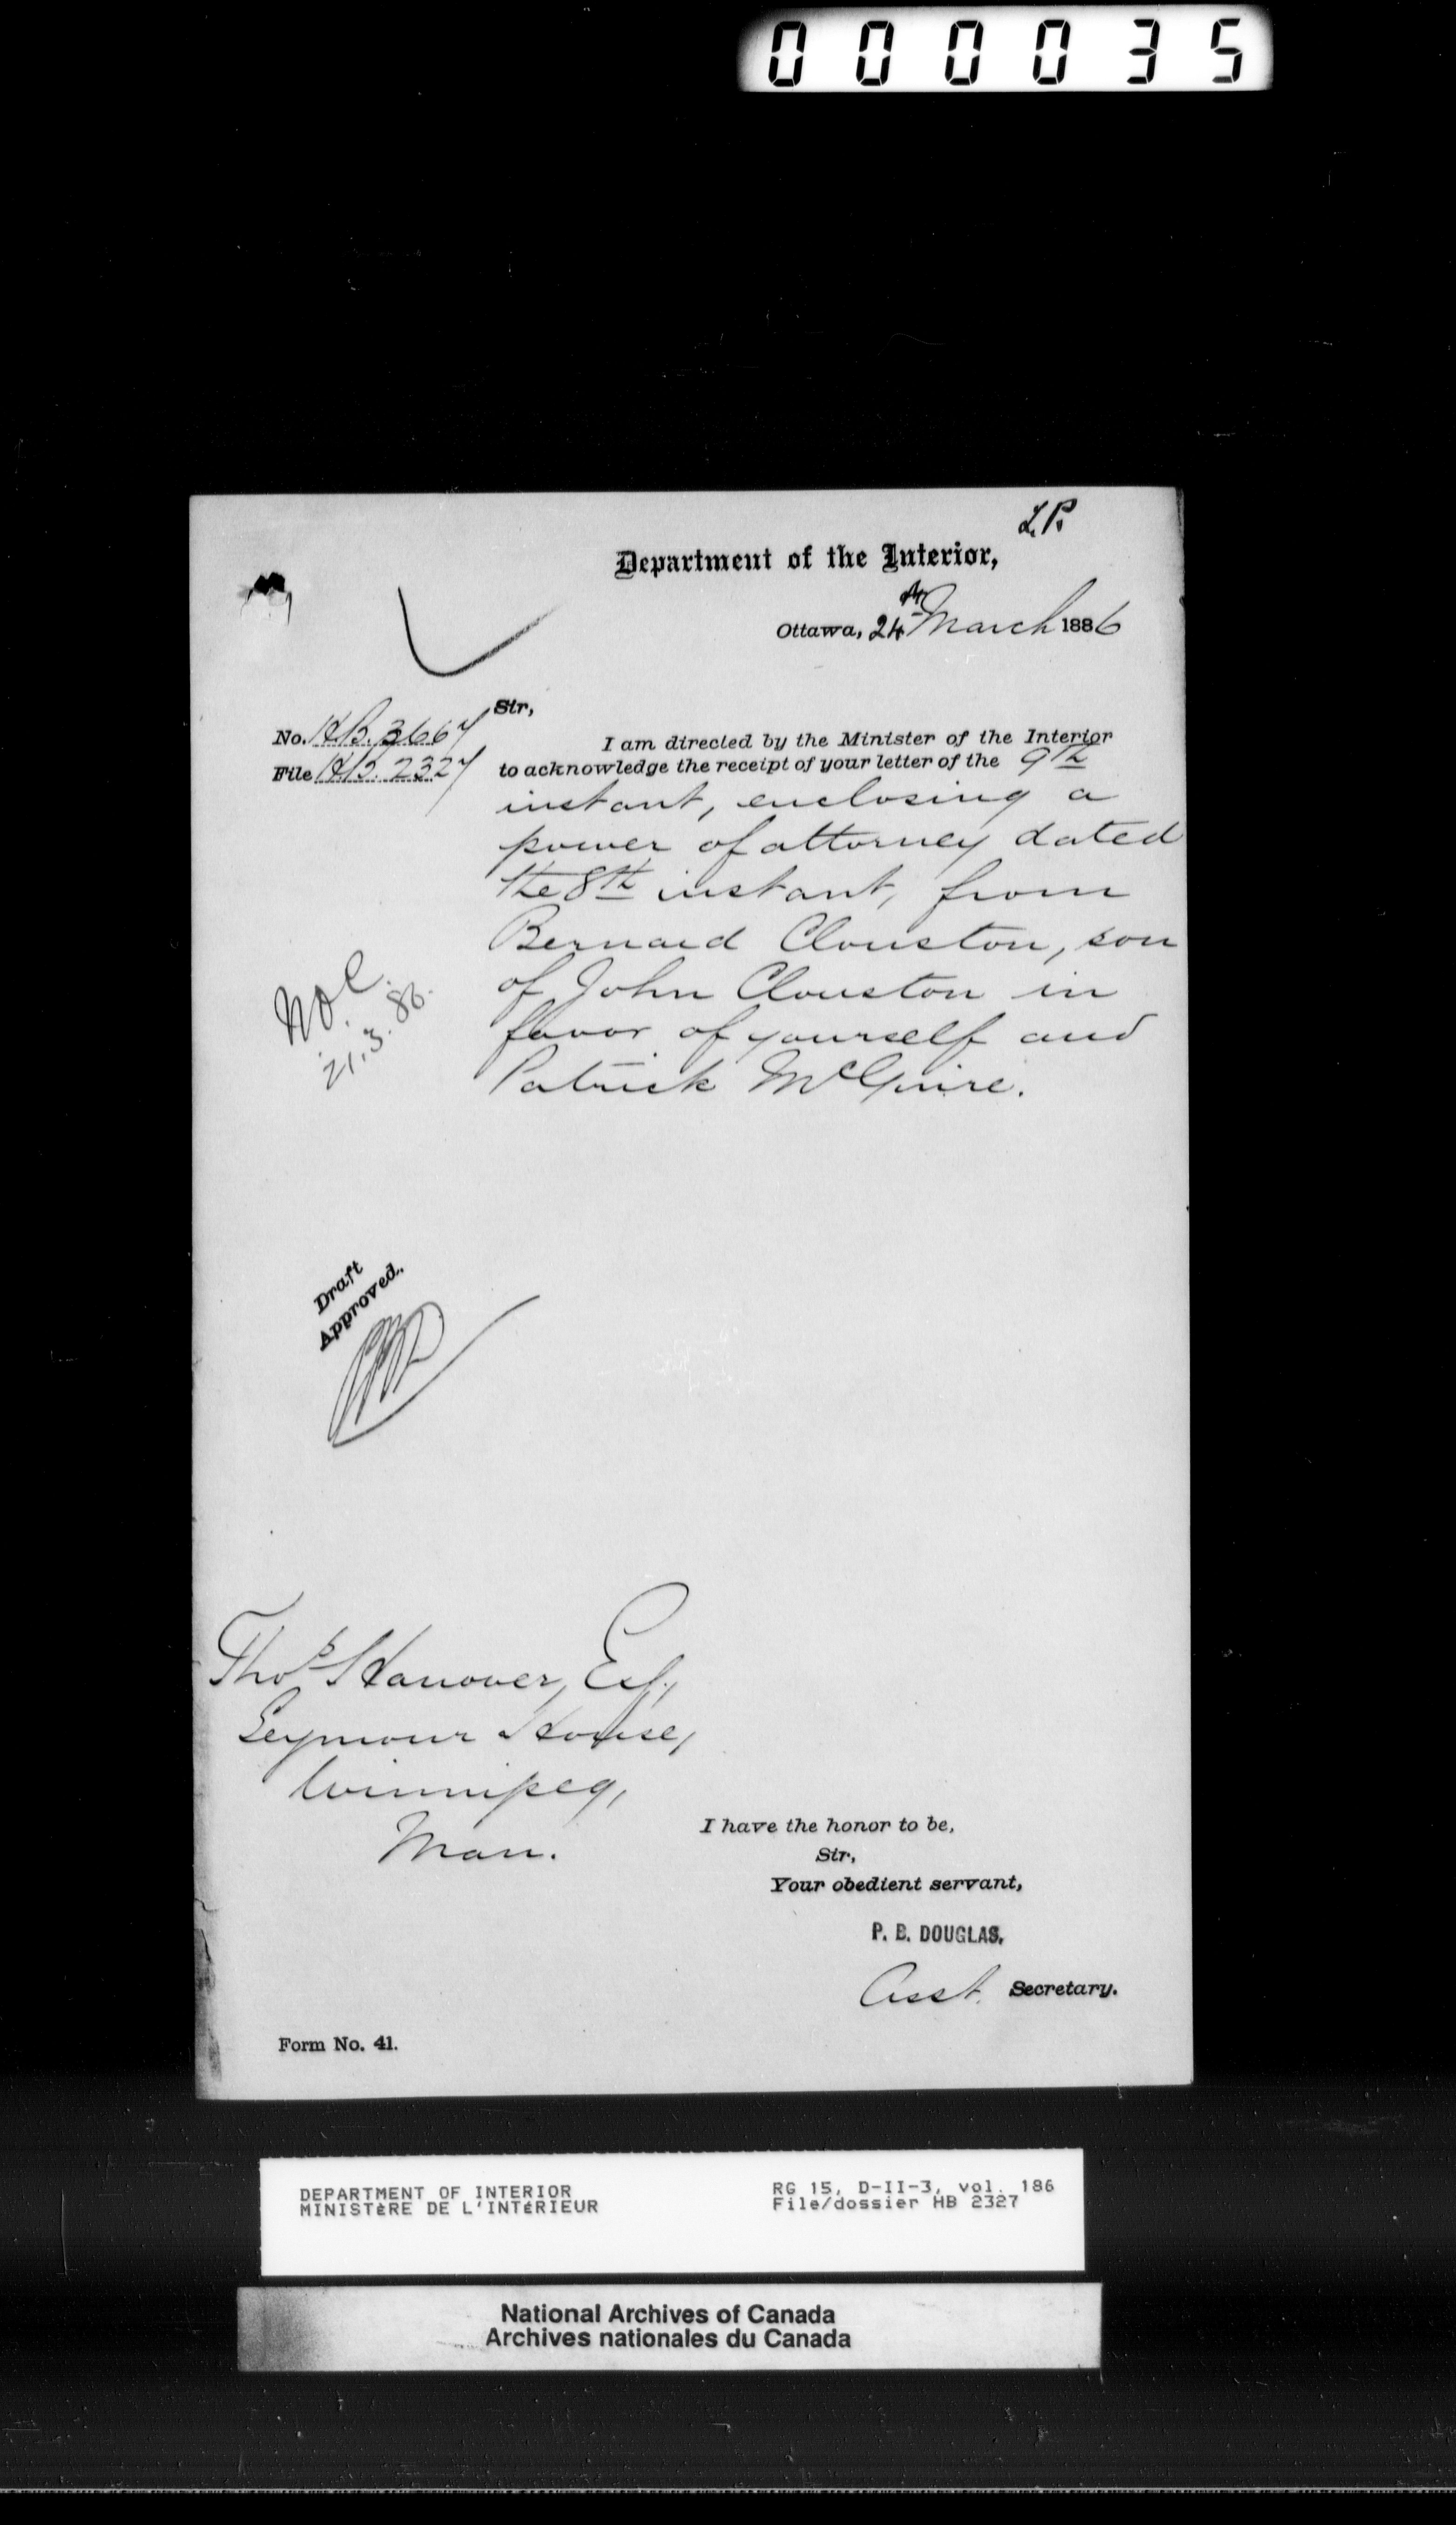 000035
L.P.
Department of the Interior,
Ottawa, 24th March 1886
Sir,
No. H.B. 3667
File H.B. 2327
I am directed by the Minister of the Interior
to acknowledge the receipt of your letter of the 9th
instant, enclosing a
power of attorney dated
the 8th instant, from
Bernard Clouston, son
of John Clouston in
favor of yourself and
Patrick McGuire.
21.3.86.
Draft
Approved.
Thos Hanover, Esq.,
Seymour House,
Winnipeg,
Man.
I have the honor to be,
Sir,
Your obedient servant,
P. B. DOUGLAS,
Asst. Secretary.
Form No. 41.
DEPARTMENT OF INTERIOR
MINISTÈRE DE L'INTÉRIEUR
RG 15, D-II-3, vol. 186
File/dossier HB 2327
National Archives of Canada
Archives nationales du Canada